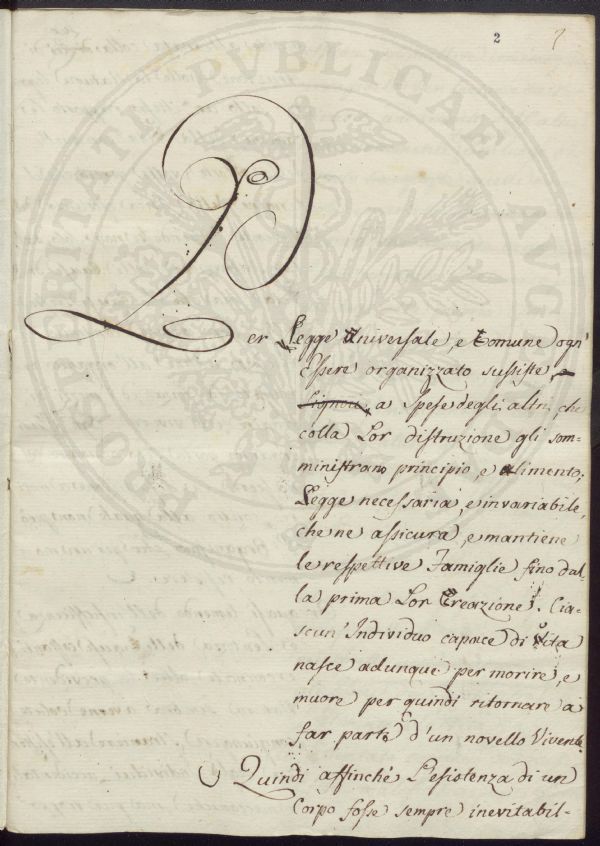 2
Per Legge Universale, e Comune ogn'
Essere organizzato sussiste, e
Signori, a Spese degli altri, che
colla Lor distruzione gli som-
ministrano principio, e alimento;
Legge necessaria, e invariabile,
che ne assicura, e mantiene
le respettive Famiglie fino dal-
la prima Lor Creazione. Cia-
scun' Individuo capace di Vita
nasce adunque per morire, e
muore per quindi ritornare a
far parte d'un novello Vivente.
Quindi affinché l'esistenza di un
Corpo fosse sempre inevitabil-
PROSPERITATI PUBLICAE AUG